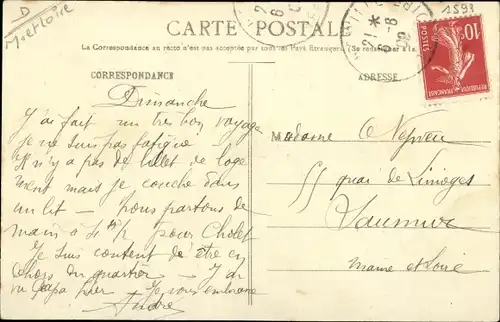 D
M et Loire
1593
CARTE POSTALE
La Correspondance au recto n'est pas acceptée par tous les Pays Étrangers (Se renseigner à la
CORRESPONDANCE
ADRESSE
10c
POSTES
RÉPUBLIQUE FRANÇAISE
21 * 6-8 09
Dimanche
J'ai fait un très bon voyage
je ne suis pas fatigué
Il n'y a pas de billet de loge
ment mais je couche dans
un lit – nous partons de
main à pour Cholet
Je suis content d'être en
dehors du quartier – J'ai
vu papa hier – Je vous embrasse
André
Madame
55 quai de Limoges
Saumur
Maine et Loire